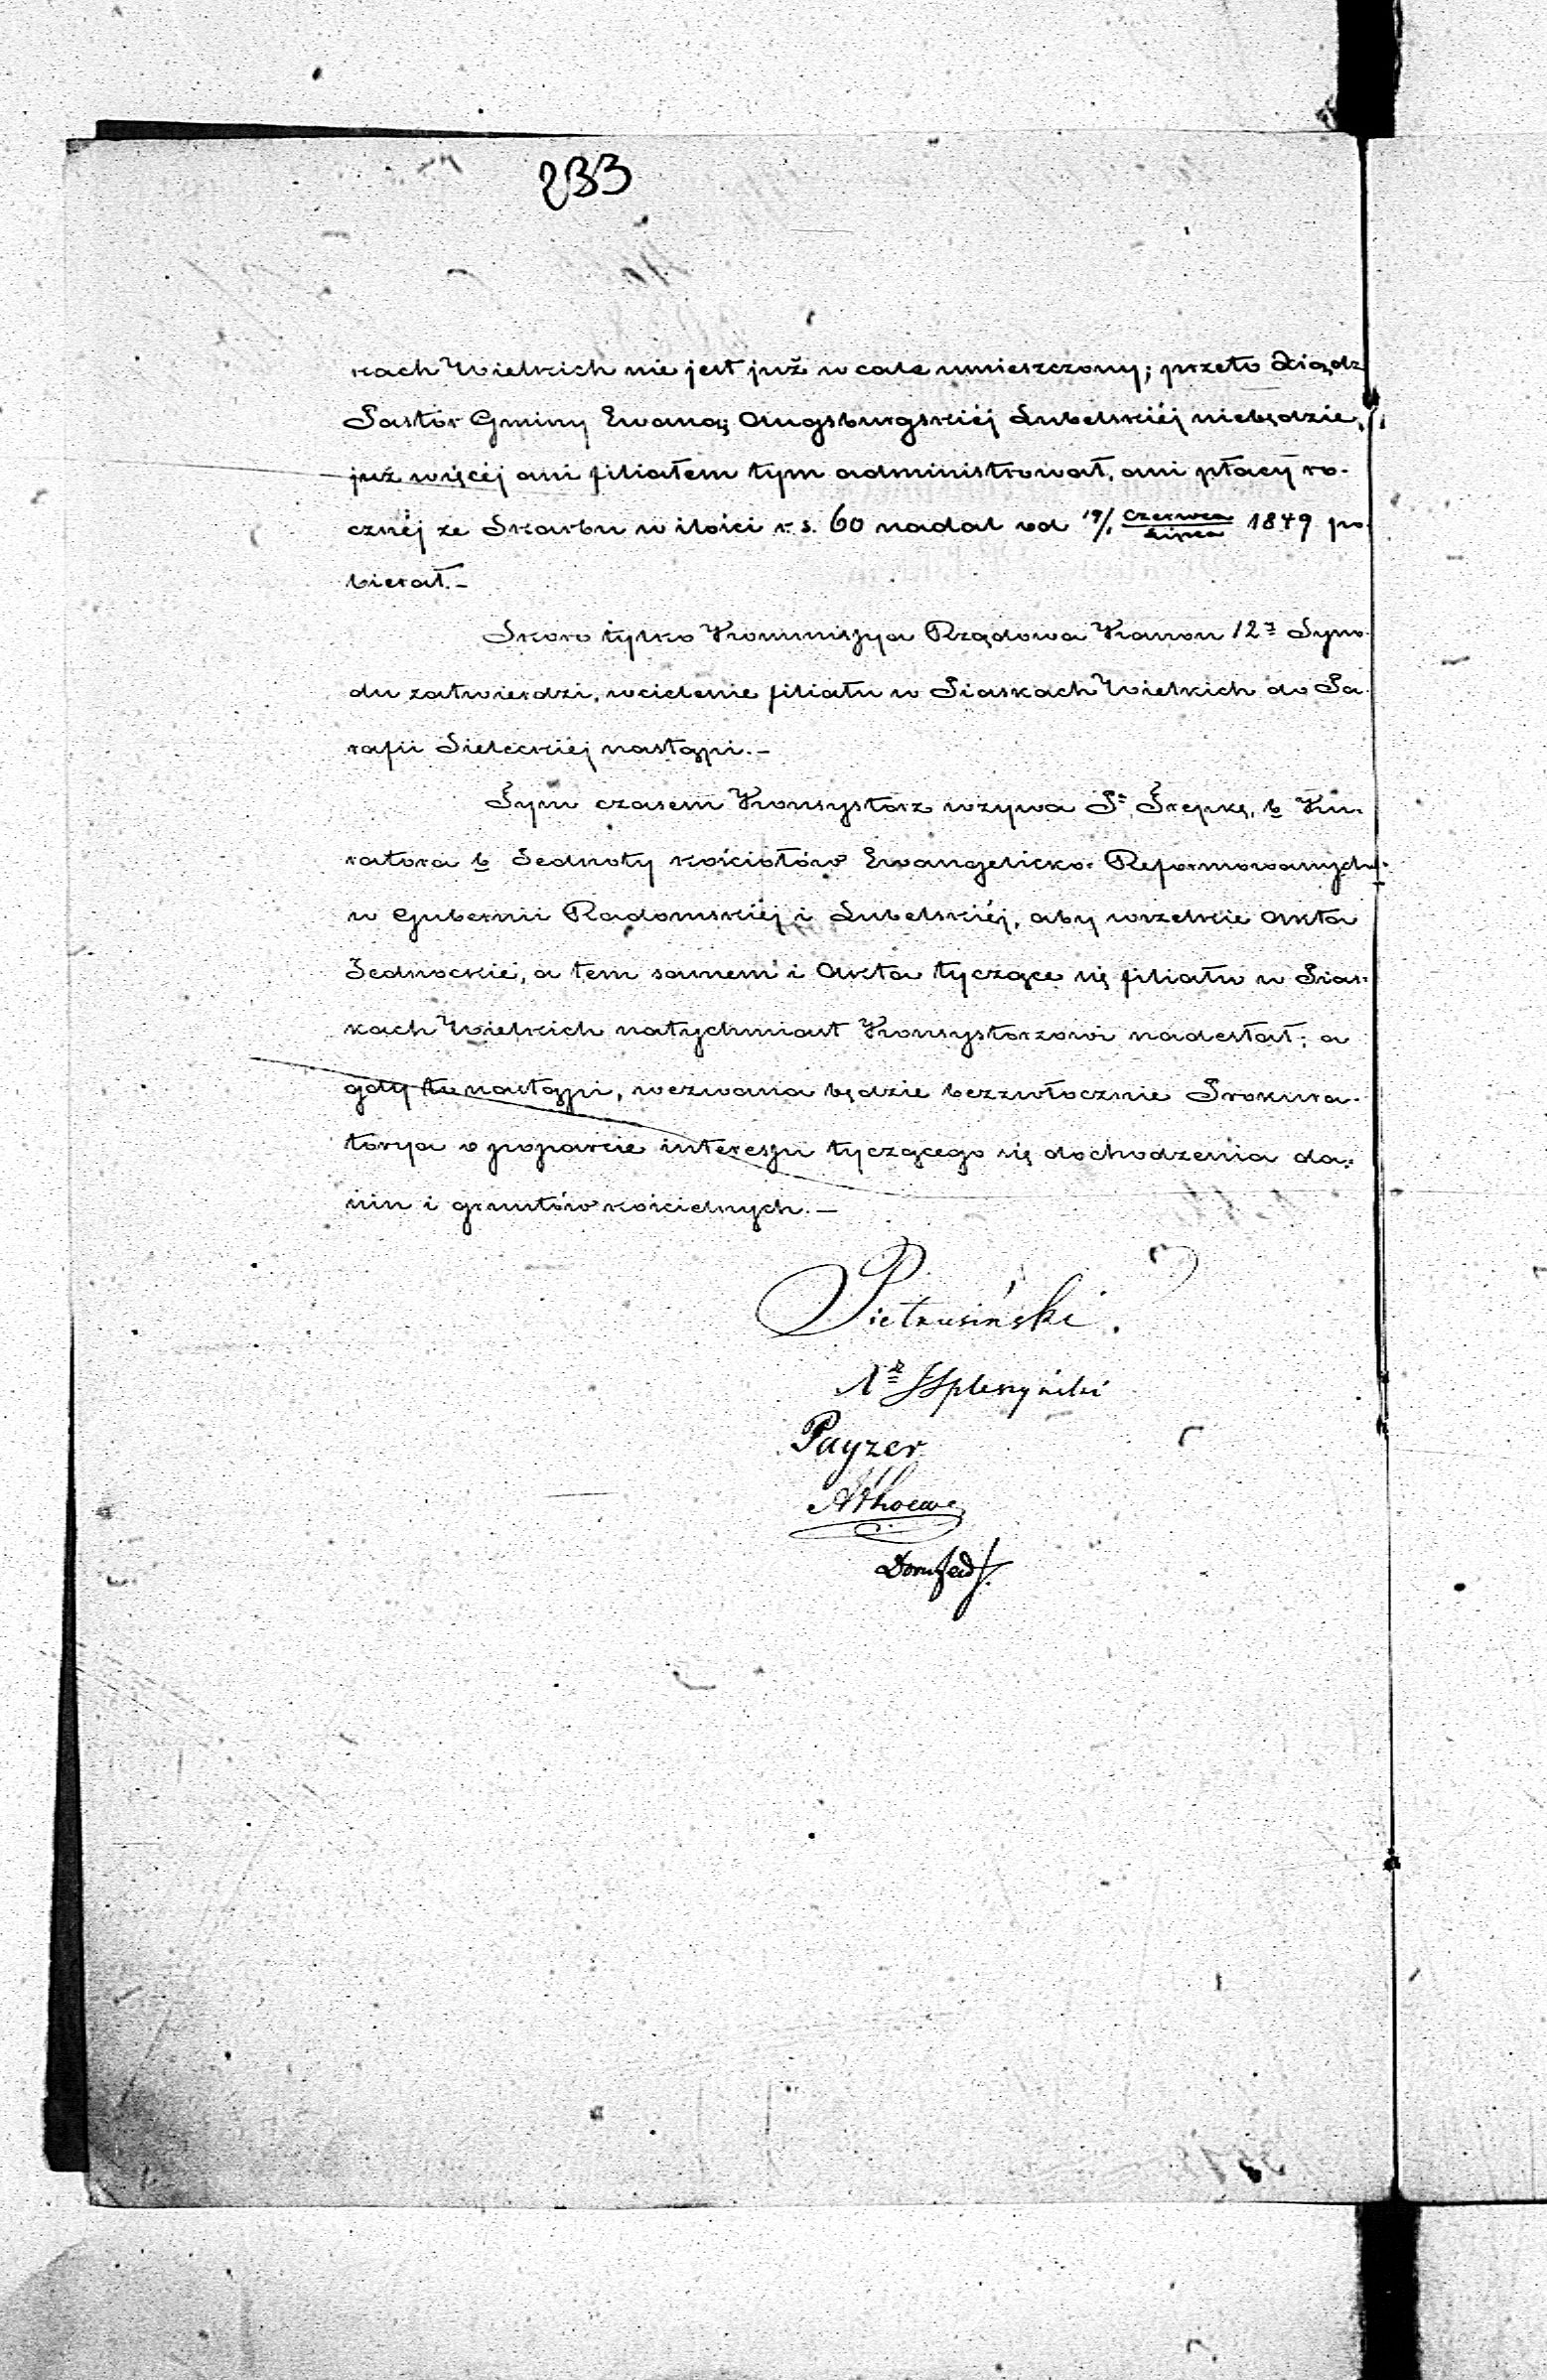 233
kach Wielkich nie jest już wcale umieszczony; przeto Xiądz
Pastor Gminy Ewang: Augsburgskiéj Lubelskiéj niebędzie
już więcéj ani filiałem tym administrował, ani płacy ro-
cznéj ze Skarbu w ilości r. s. 60 nadal od 19/1 Czerwca/Lipca 1849 po-
bierał.–
Skoro tylko Kommissya Rządowa Kanon 12ty Syno-
du zatwierdzi, wcielenie filiału w Piaskach Wielkich do Pa-
rafii Sieleckiéj nastąpi.–
Tym czasem Konsystorz wzywa Pa Trepkę, b Ku-
ratora b Jednoty kościołów Ewangelicko-Reformowanych
w Gubernii Radomskiéj i Lubelskiéj, aby wszelkie Akta
Jednockie, a tem samem i Akta tyczące się filiału w Pias-
kach Wielkich natychmiast Konsystorzowi nadesłał; a
gdy to nastąpi, wezwana będzie bezzwłocznie Prokura-
torya o poparcie interessu tyczącego się dochodzenia da-
nin i gruntów kościelnych.–
Pietrusiński.
Payzer